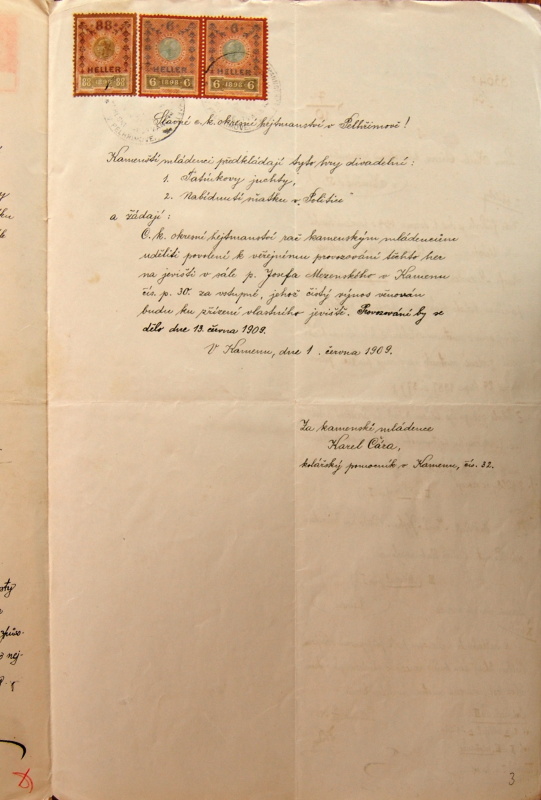 88 6 6
HELLER HELLER HELLER
88 1898 88 6 1898 6 6 1898 6
Slavné c. k. okresní hejtmanství v Pelhřimově!
Kamenští mládenci předkládají tyto hry divadelní:
1. Tatínkovy juchty,
2. Nabídnutí sňatku v Politice
a žádají:
C. k. okresní hejtmanství rač kamenským mládencům
uděliti povolení k veřejnému provozování těchto her
na jevišti v sále p. Josefa Mezenského v Kamenu
čís. p. 30. za vstupné, jehož čistý výnos věnován
budu ku zřízení vlastního jeviště. Provozování by se
dělo dne 13. června 1909.
V Kamenu, dne 1. června 1909.
Za kamenské mládence
Karel Cára,
kolářský pomocník v Kamenu, čís. 32.
3